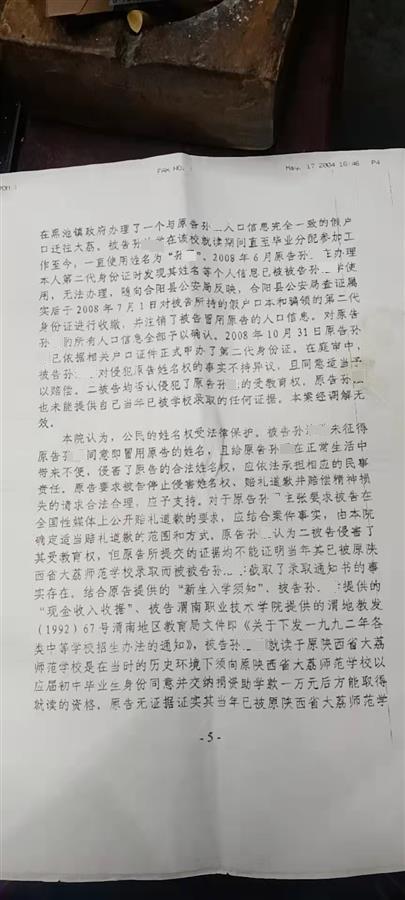 FAX NO. :
Mar. 17 2004 16:46 P4
在黑池镇政府办理了一个与原告孙 人口信息完全一致的假户
口迁往大荔。被告孙 在该校就读期间直至毕业分配参加工
作至今，一直使用姓名为“孙 ”。2008年6月原告孙 办理
本人第二代身份证时发现其姓名等个人信息已被被告孙 使
用，无法办理，随向合阳县公安局反映，合阳县公安局查证属
实后于2008年7月1日对被告所持的假户口本和骗领的第二代
身份证进行收缴，并注销了被告冒用原告的人口信息。对原告
孙 的所有人口信息全部予以确认。2008年10月31日原告孙
已依据相关户口证件正式申办了第二代身份证。在庭审中，
被告孙 对侵犯原告姓名权的事实不持异议，且同意适当予
以赔偿。二被告均否认侵犯了原告孙 的受教育权，原告孙
也未能提供自己当年已被学校录取的任何证据。本案经调解无
效。
本院认为，公民的姓名权受法律保护。被告孙 未征得
原告孙 同意即冒用原告的姓名，且给原告孙 在正常生活中
带来不便，侵害了原告的合法姓名权，应依法承担相应的民事
责任。原告要求被告停止侵害姓名权，赔礼道歉并赔偿精神损
失的请求合法合理，应予支持。对于原告孙 主张要求被告在
全国性媒体上公开赔礼道歉的要求，应结合案件事实，由本院
确定适当赔礼道歉的范围和方式。原告孙 认为二被告侵害了
其受教育权，但原告所提交的证据均不能证明当年其已被原陕
西省大荔师范学校录取而被被告孙 截取了录取通知书的事
实存在。结合原告提供的“新生入学须知”、被告孙 提供的
“现金收入收据”、被告渭南职业技术学院提供的渭地教发
（1992）67号渭南地区教育局文件即《关于下发一九九二年各
类中等学校招生办法的通知》，被告孙 就读于原陕西省大荔
师范学校是在当时的历史环境下须向原陕西省大荔师范学校以
应届初中毕业生身份同意并交纳捐资助学款一万元后方能取得
就读的资格，原告无证据证实其当年已被原陕西省大荔师范学
- 5 -